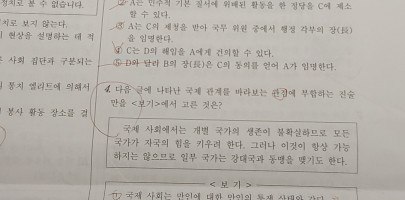 치로 볼 수 없습니다.
치로 보지 않는다.
현상을 설명하는 데 적
사회 집단과 구분되는
통치 엘리트에 의해서
봉사 활동 장소를 결
② A는 민주적 기본 질서에 위배된 활동을 한 정당을 C에 제소
할 수 있다.
③ A는 C의 제청을 받아 국무 위원 중에서 행정 각부의 장(長)
을 임명한다.
④ C는 D의 해임을 A에게 건의할 수 있다.
⑤ D와 달리 B의 장(長)은 C의 동의를 얻어 A가 임명한다.
4. 다음 글에 나타난 국제 관계를 바라보는 관점에 부합하는 진술
만을 <보기>에서 고른 것은?
국제 사회에서는 개별 국가의 생존이 불확실하므로 모든
국가가 자국의 힘을 키우려 한다. 그러나 이것이 항상 가능
하지는 않으므로 일부 국가는 강대국과 동맹을 맺기도 한다.
<보 기>
ㄱ. 국제 사회는 만인에 대한 만인의 투쟁 상태와 같다.